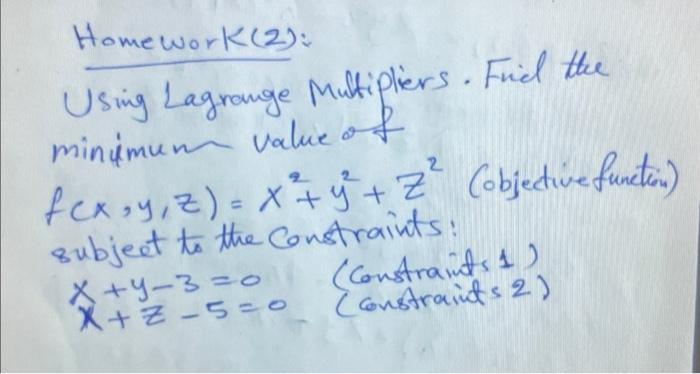 Homework(2):
Using Lagrange Multipliers. Find the
minimum value of
f(x,y,z) = x²+y²+z² (objective function)
subject to the Constraints:
x+y-3=0 (Constraints 1)
x+z-5=0 (Constraints 2)